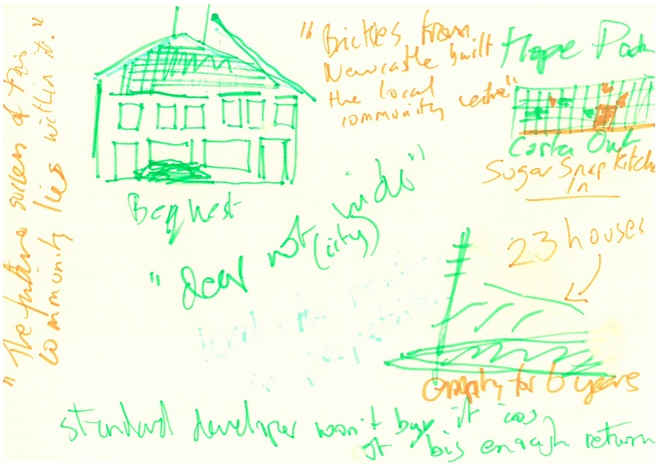 "The future success of this
community lies within it."
Bequest
"Brickies from
Newcastle built
the local
community centre"
Hope Park
Costa Out
Sugar Snap Kitchen
In
"deer not
(city)
23 houses
Empty for 6 years
standard developer won't buy it cos
big enough return